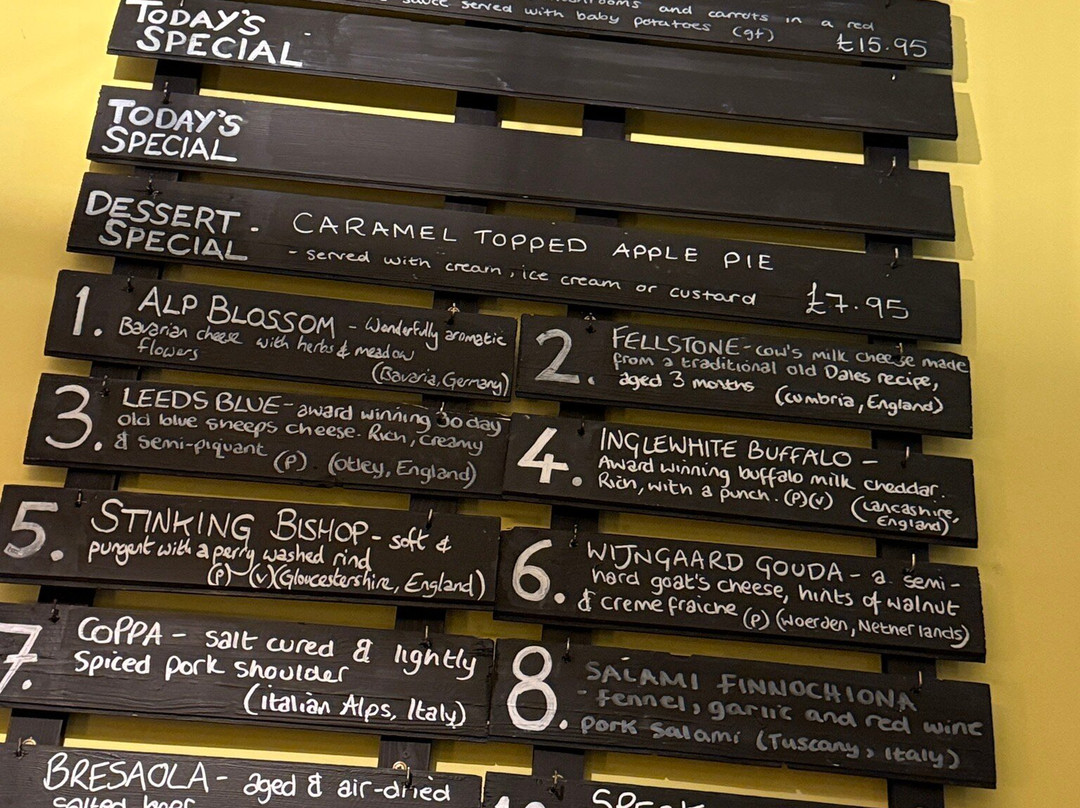 and carrots in a red
sauce served with baby potatoes (gf)
£15.95
TODAY'S
SPECIAL
TODAY'S
SPECIAL
DESSERT
SPECIAL
· CARAMEL TOPPED APPLE PIE
- served with cream, ice cream or custard
£7.95
1. ALP BLOSSOM - Wonderfully aromatic
Bavarian cheese with herbs & meadow
flowers
(Bavaria, Germany)
2. FELLSTONE - cow's milk cheese made
from a traditional old Dales recipe,
aged 3 months (Cumbria, England)
3. LEEDS BLUE - award winning 30 day
old blue sheeps cheese. Rich, creamy
& semi-piquant
(P). (Otley, England)
4. INGLEWHITE BUFFALO -
Award winning buffalo milk cheddar.
Rich, with a punch. (P)(V) (Lancashire,
England)
5. STINKING BISHOP - soft &
pungent with a perry washed rind
(P) - (V)(Gloucestershire, England)
6. WIJNGAARD GOUDA - a semi-
hard goat's cheese, hints of walnut
& creme fraiche (P) (Woerden, Netherlands)
7. COPPA - salt cured & lightly
spiced pork shoulder
(italian Alps, Italy)
8. SALAMI FINNOCHIONA
- fennel, garlic and red wine
pork salami (Tuscany, Italy)
BRESAOLA - aged & air-dried
salted